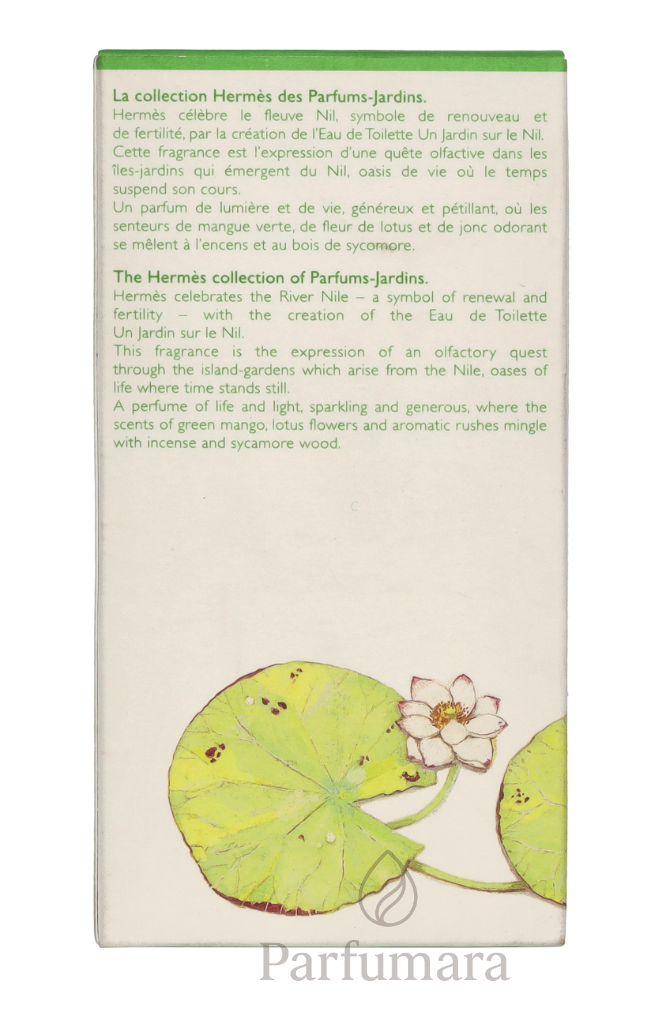 La collection Hermès des Parfums-Jardins.
Hermès célèbre le fleuve Nil, symbole de renouveau et
de fertilité, par la création de l'Eau de Toilette Un Jardin sur le Nil.
Cette fragrance est l'expression d'une quête olfactive dans les
îles-jardins qui émergent du Nil, oasis de vie où le temps
suspend son cours.
Un parfum de lumière et de vie, généreux et pétillant, où les
senteurs de mangue verte, de fleur de lotus et de jonc odorant
se mêlent à l'encens et au bois de sycomore.
The Hermès collection of Parfums-Jardins.
Hermès celebrates the River Nile – a symbol of renewal and
fertility – with the creation of the Eau de Toilette
Un Jardin sur le Nil.
This fragrance is the expression of an olfactory quest
through the island-gardens which arise from the Nile, oases of
life where time stands still.
A perfume of life and light, sparkling and generous, where the
scents of green mango, lotus flowers and aromatic rushes mingle
with incense and sycamore wood.
Parfumara